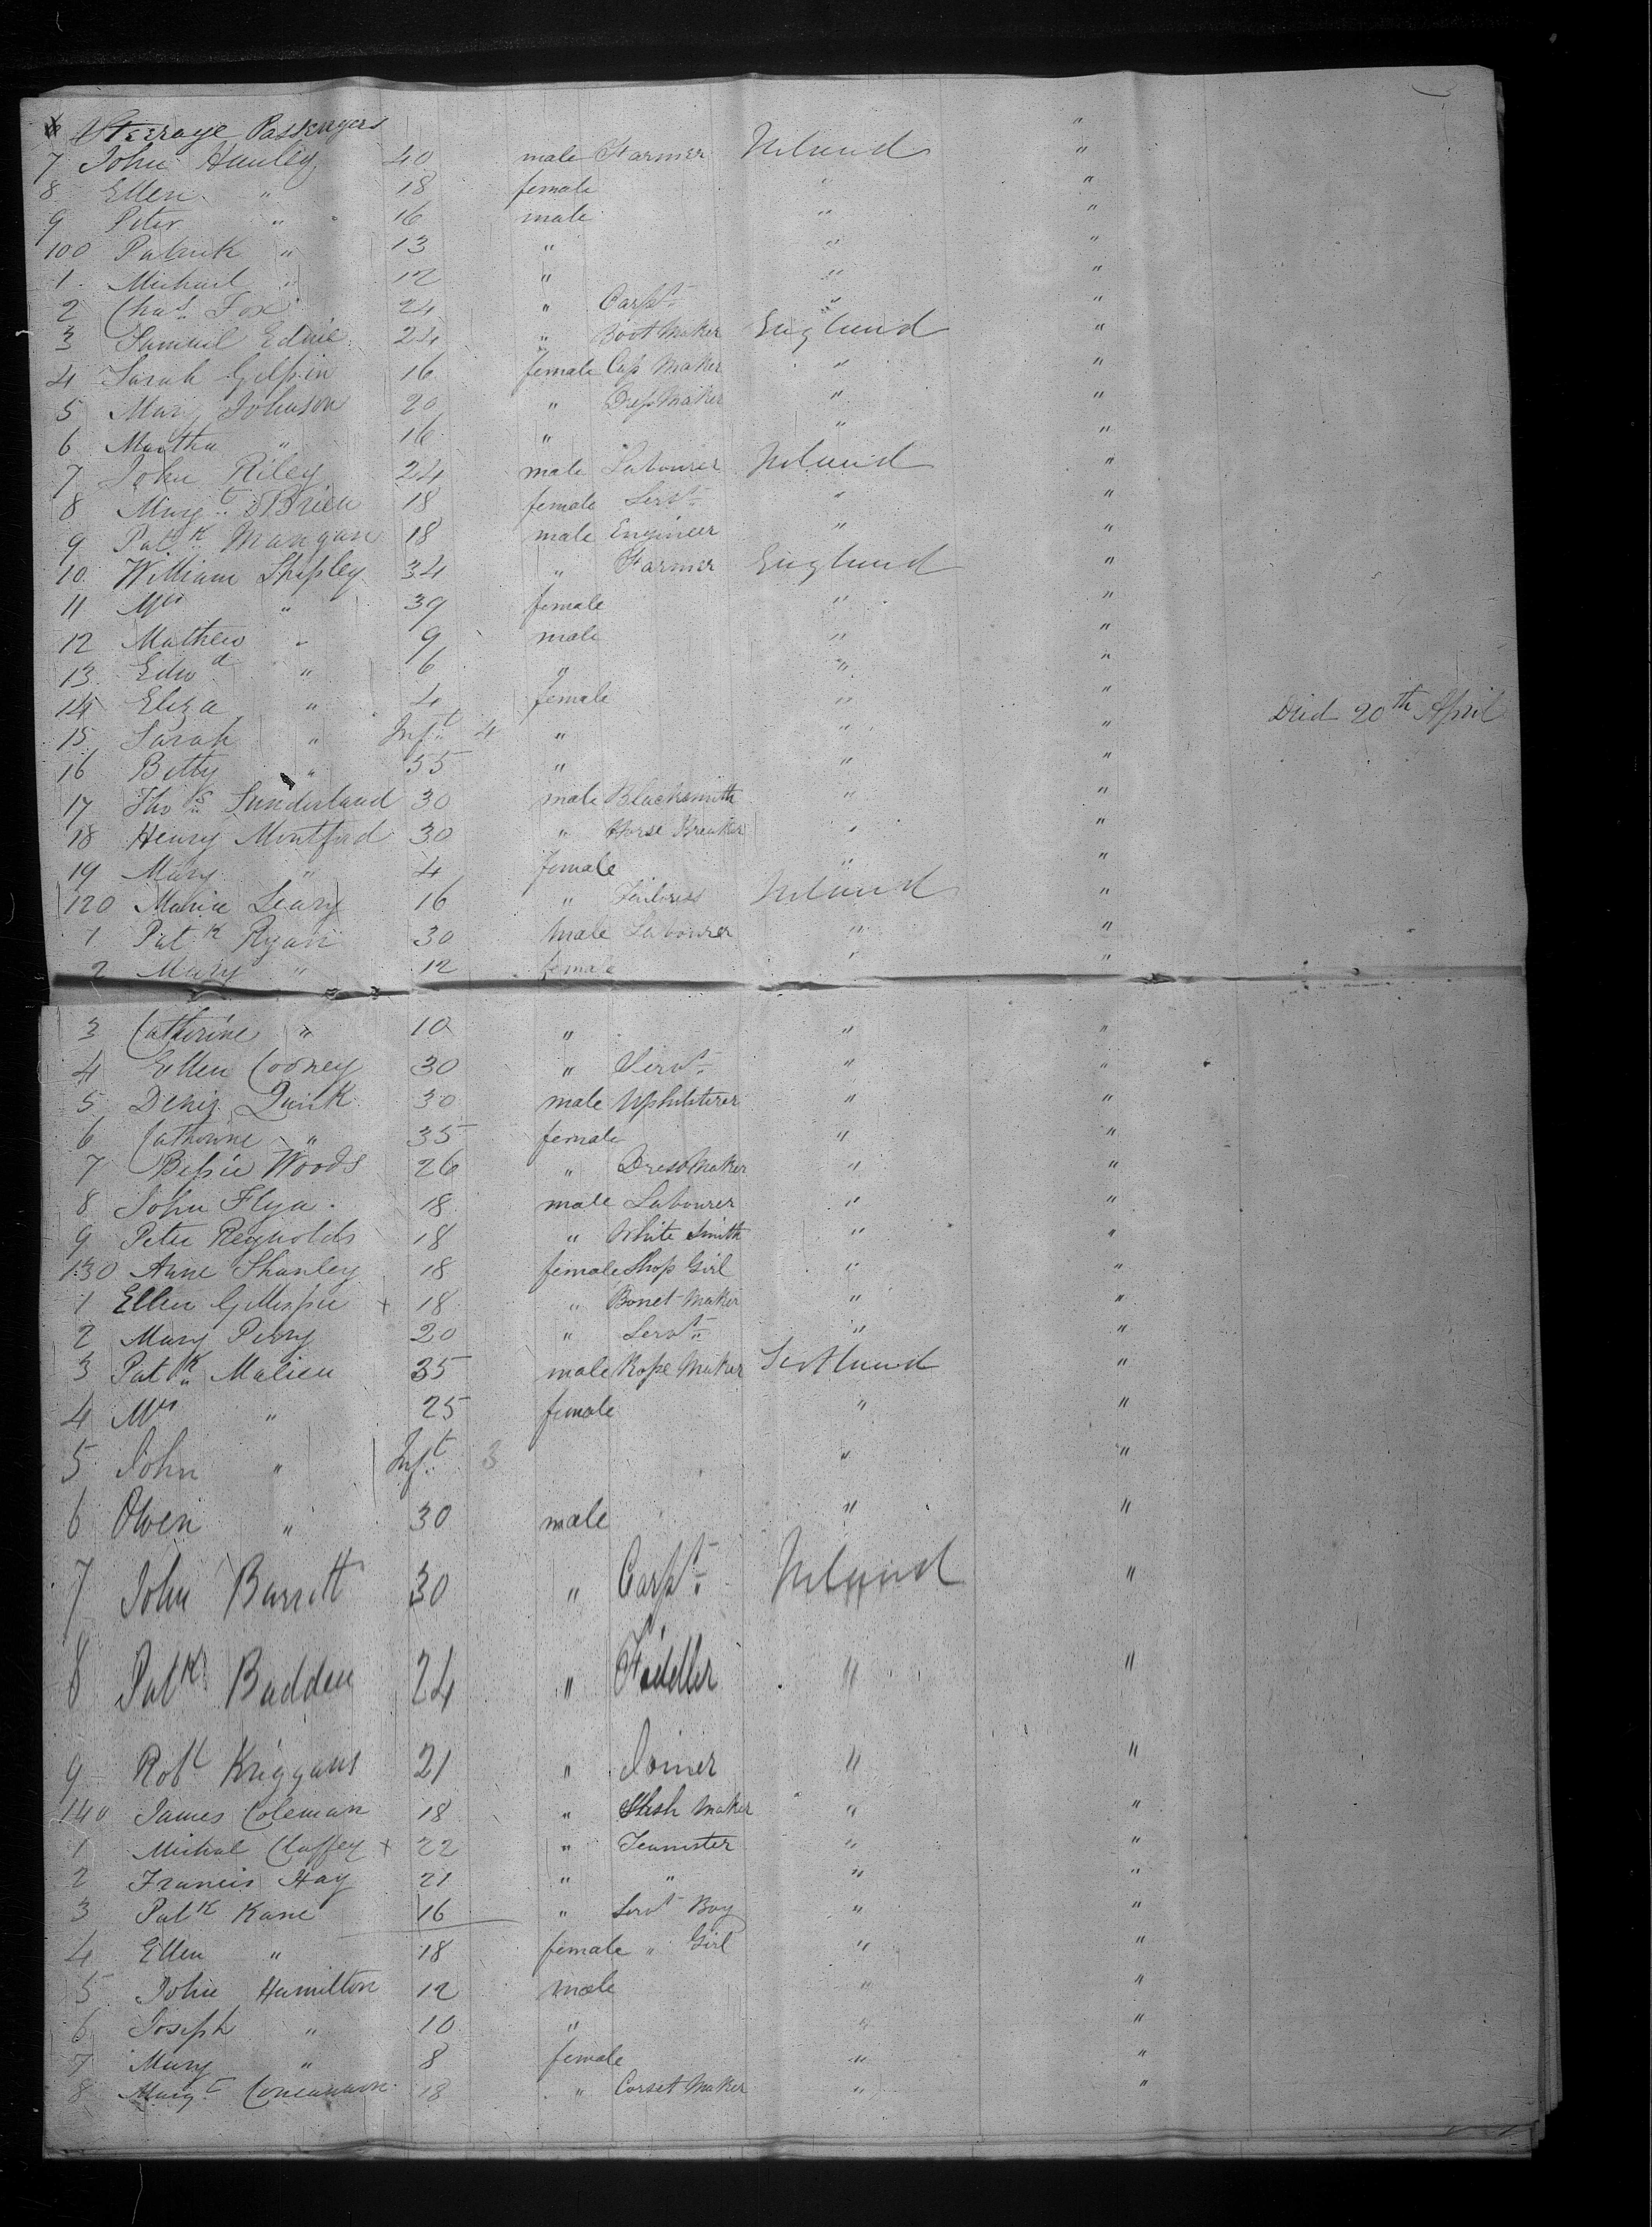 Steerage Passengers "
7 John Hanley 40 male Farmer Ireland "
8 Ellen " 18 female " "
9 Peter " 16 male " "
100 Patrick " 13 " " "
1 Michael " 12 " " "
2 Chas Fox 24 " Carpt " "
3 Samuel 24 " Boot Maker England "
4 Sarah Gilpin 16 female Cap Maker " "
5 Mary Johnson 20 " Dress Maker " "
6 Martha " 16 " " "
7 John Riley 24 male Labourer Ireland "
8 Margt OBrien 18 female Servt " "
9 Patk Mangan 18 male Engineer " "
10 William Shipley 34 " Farmer England "
11 Mrs " 39 female " "
12 Mathew " 9 male " "
13 Edwd " 6 " " "
14 Eliza " 4 female " " Died 20th April
15 Sarah " Inft 4 " " "
16 Betty " 55 " " "
17 Thos Sunderland 30 male Blacksmith " "
18 Henry Montford 30 " Horse Breaker " "
19 Mary " 4 female " "
120 Maria Leary 16 " Tailoress Ireland "
1 Patk Ryan 30 male Labourer " "
2 Mary " 12 female " "
3 Catherine " 10 " " "
4 Ellen Cooney 30 " Servt " "
5 Denis Quirk 30 male Upholsterer " "
6 Catherine " 35 female " "
7 Bessie Woods 26 " Dress Maker " "
8 John 18 male Labourer " "
9 Peter Reynolds 18 " White Smith " "
130 Anne Shanley 18 female Shop Girl " "
1 Ellen Gillespie + 18 " Bonet Maker " "
2 Mary Perry 20 " Servt " "
3 Patk Malien 35 male Rope Maker Scotland "
4 Mrs " 25 female " "
5 John " Inft 3 " "
6 Owen " 30 male " "
7 John Barrett 30 " Carpt Ireland "
8 Patk Badden 24 " Fiddler " "
9 Robt Kriggans 21 " Joiner " "
140 James Coleman 18 " Maker " "
1 Micheal Claffey + 22 " Teamster " "
2 Francis Hay 21 " " " "
3 Patk Kane 16 " Servt Boy " "
4 Ellen " 18 female " Girl " "
5 John Hamilton 12 male " "
6 Joseph " 10 " " "
7 Mary " 8 female " "
8 Margt Concannon 18 " Corset Maker " "